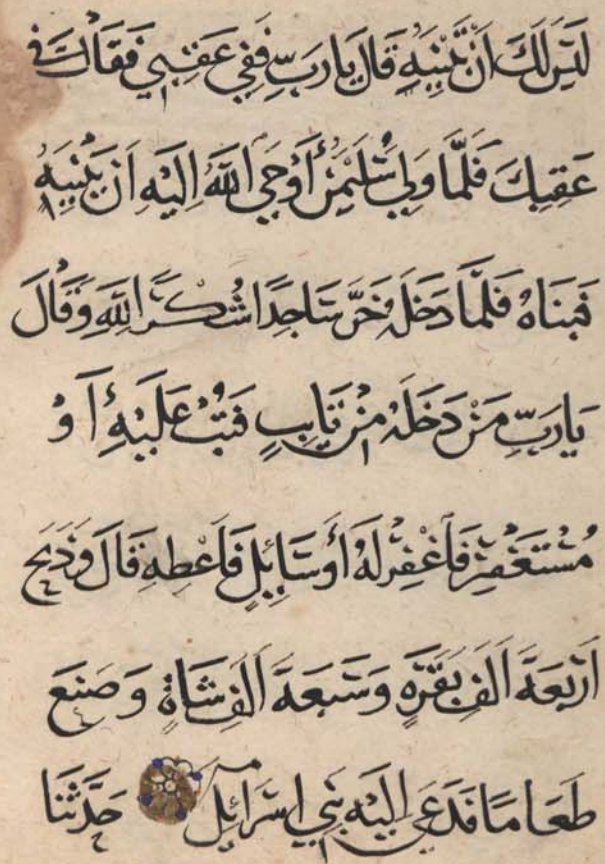 لَيْسَ لَكَ اَنْ تَبْنِيَهِ قَالَ يَارَبِّ فَفِي عَقِبِي فَقَالَ فِي
عَقِبِكَ فَلَمَّا وَلِيَ سُلَيْمٰنُ أَوْحَي اللَّهُ اِلَيْهِ اَنْ يَبْنِيَهُ
فَبَنَاهُ فَلَمَّا دَخَلَهُ خَرَّ سَاجِدًا شُكْرًا لِلَّهِ وَقَالَ
يَارَبِّ مَنْ دَخَلَهُ مِنْ تَايِبٍ فَتُبْ عَلَيْهِ أَوْ
مُسْتَغْفِرٍ فَاغْفِرْ لَهُ أَوسَايِلٍ فَاَعْطِهِ قَالَ وَذَبَحَ
اَرْبَعَةَ اَلَفِ بَقَرَةٍ وَسَبْعَةَ اَلَفِ شَاةٍ وَصَنَعَ
طَعَامًا فَدَعَي اِلَيْهِ بَنِي اِسْرَائِلَ حَدَّثَنَا